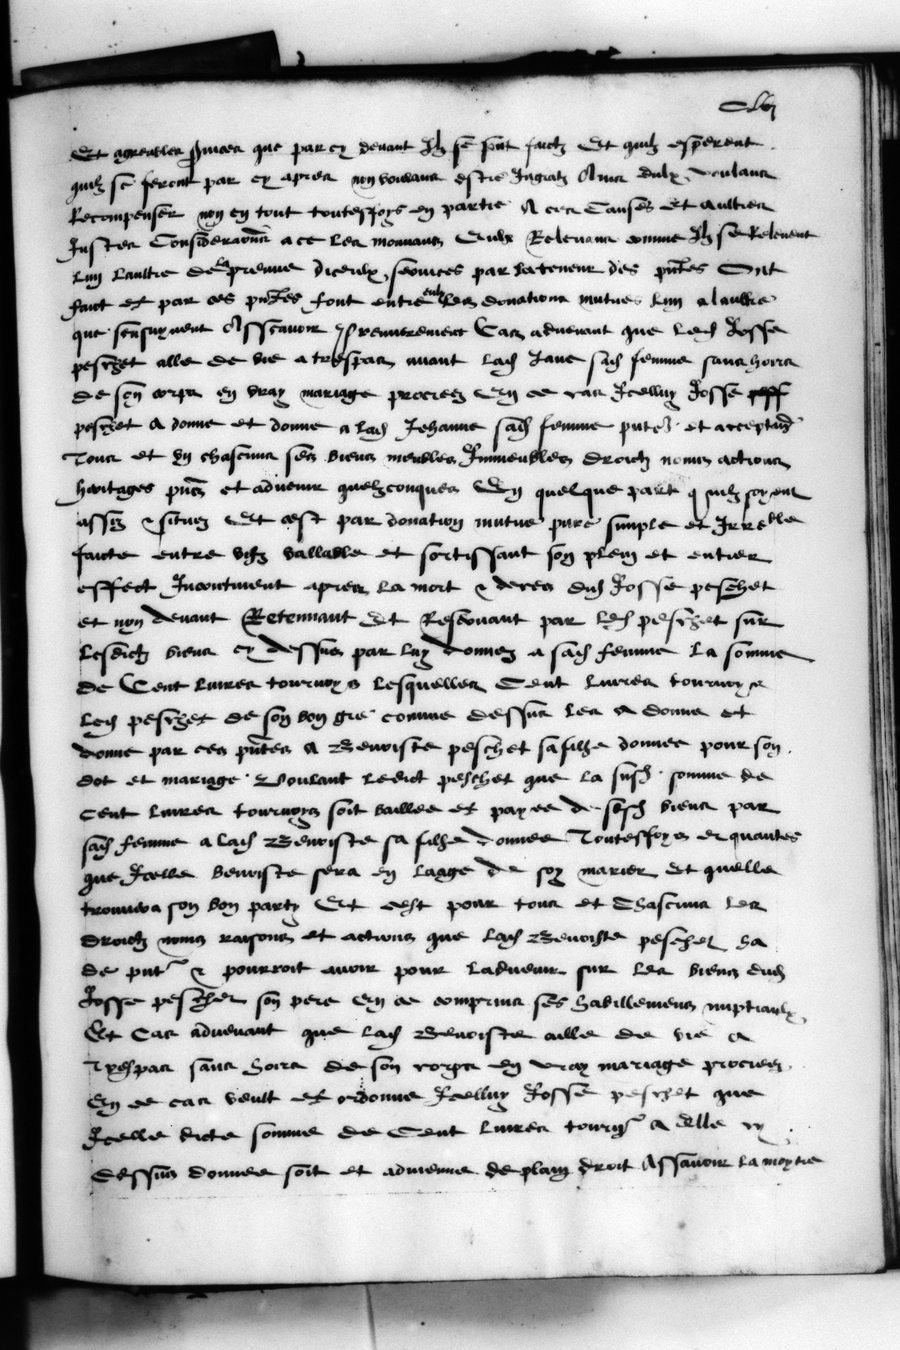 Et agreables services que par cy devant Ilz se sont faictz Et quilz esperent
quilz se feront par cy apres non voulans estre Ingratz Ains diceulx voulans
Recompenser non en tout touteffoys en partie A ces Causes Et aultres
Justes Consideracions a ce les mouvans Ceulx Relevans comme Ilz se Relevent
lun laultre de la preuve diceulx services par la teneur des pntes Ont
faict et par ces pntes font entre eulx les donations mutues lun a laultre
que sensuyvent Assavoir Premierement Cas advenant que led Josse
peschet alle de vie a trespas avant lad Jane sad femme sans hoirs
de son corps en vray mariage procreez En ce cas Icelluy Josse
peschet a donne et donne a lad Jehanne sad femme pnte et acceptant
Tous et ung chascuns ses biens meubles Immeubles droictz noms actions
heritages pns et advenir quelzconques En quelque part quilz soyent
assis & situez Et cest par donation mutue pure simple et Irrevocable
faicte entre vifz vallable et sortissant son plein et entier
effect Incontinent apres la mort & deces dud Josse peschet
et non devant Retenant Et Reservant par led peschet sur
lesdictz biens cy dessus par luy donnez a sad femme la somme
de Cent livres tournoys lesquelles Cent livres tournoys
led peschet de son bon gre comme dessus les a donne et
donne par ces pntes A Benoiste peschet sa filhe donnee pour son
dot et mariage Voulant ledict peschet que la susd somme de
cent livres tournoys soit baillee et payee de sesd biens par
sad femme a lad Benoiste sa filhe donnee Touteffoys et quantes
que Icelle benoiste sera en laage de soy marier Et quelle
trouvera son bon party Et cest pour tous et Chascuns les
droictz noms raisons et actions que lad Benoiste peschet ha
de pnt & pourroit avoir pour ladvenir sur les biens dud
Josse peschet son pere En ce comprins ses habillemens nuptiaulx
Et Cas advenant que lad Benoiste aille de vie a
Trespas sans hoirs de son corps en vray mariage procreez
En ce cas veult et ordonne Icelluy Josse peschet que
Icelle dicte somme de Cent livres tourn a elle cy
dessus donnee soit et advienne de plain droit Assavoir la moytie